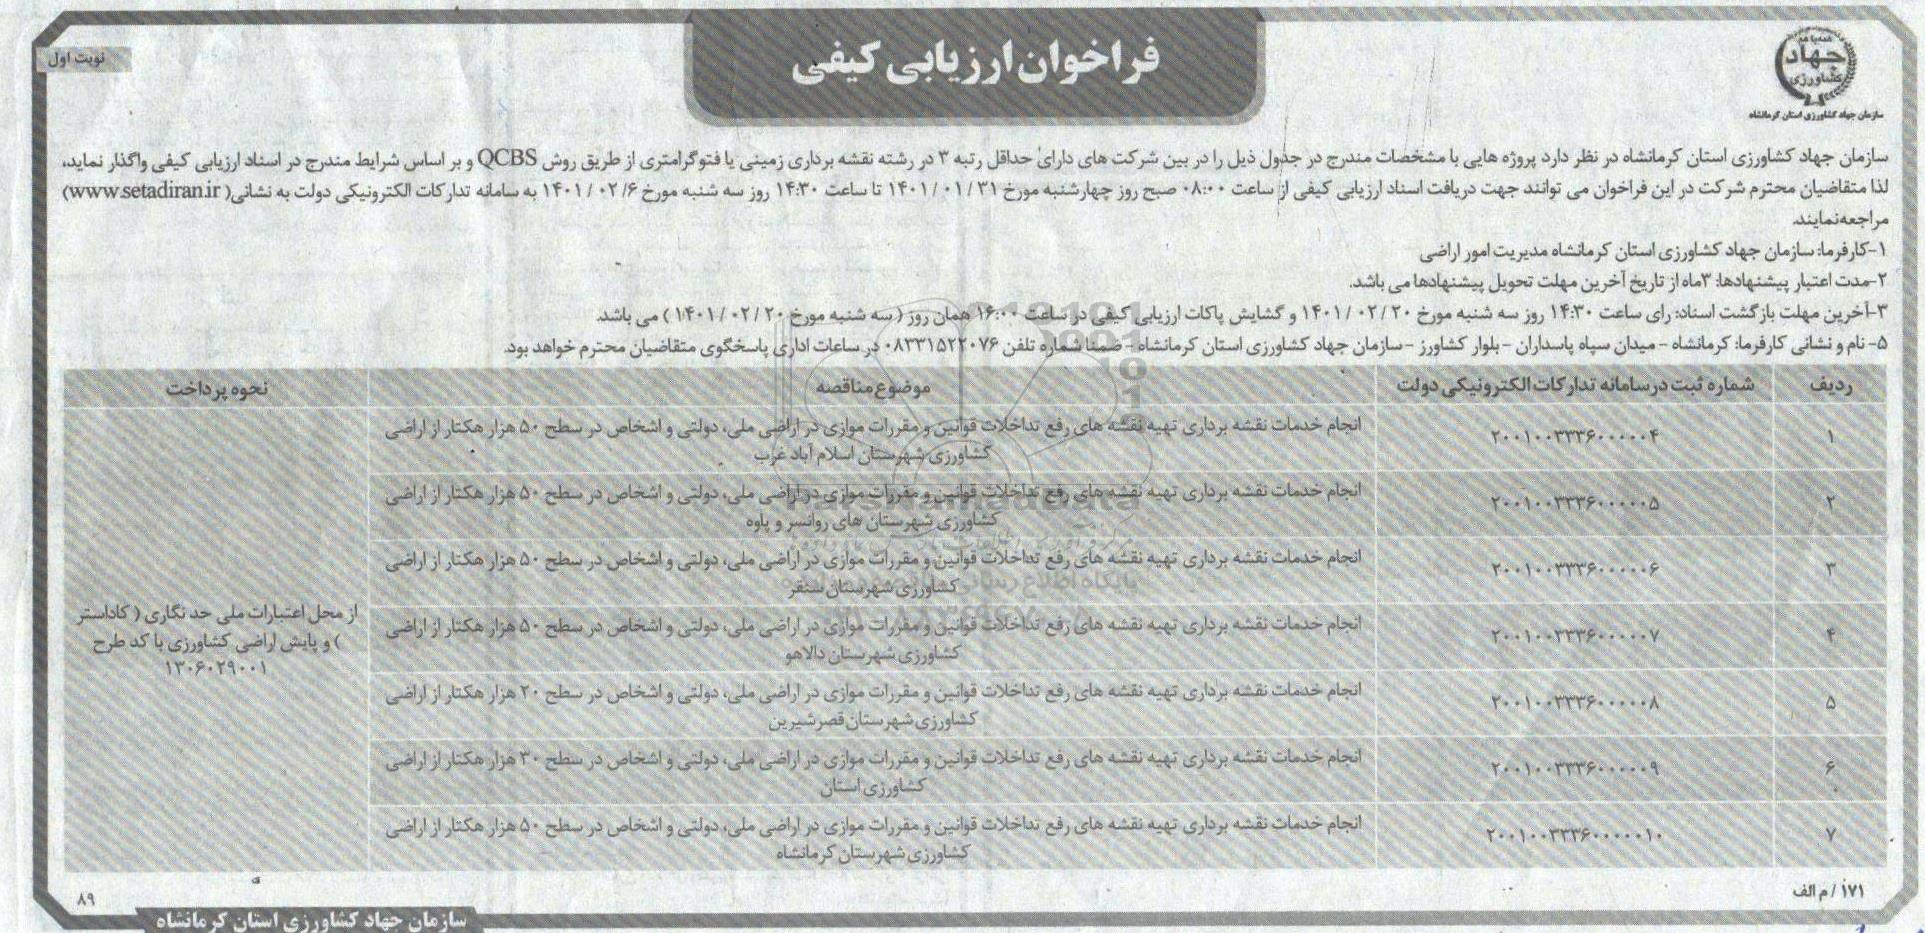 فراخوان ارزیابی کیفی
نوبت اول
جهاد
کشاورزی
سازمان جهاد کشاورزی استان کرمانشاه
سازمان جهاد کشاورزی استان کرمانشاه در نظر دارد پروژه هایی با مشخصات مندرج در جدول ذیل را در بین شرکت های دارای حداقل رتبه ۳ در رشته نقشه برداری زمینی یا فتوگرامتری از طریق روش QCBS و بر اساس شرایط مندرج در اسناد ارزیابی کیفی واگذار نماید،
لذا متقاضیان محترم شرکت در این فراخوان می توانند جهت دریافت اسناد ارزیابی کیفی از ساعت ۰۸:۰۰ صبح روز چهارشنبه مورخ ۱۴۰۱/۰۱/۳۱ تا ساعت ۱۴:۳۰ روز سه شنبه مورخ ۱۴۰۱/۰۲/۶ به سامانه تدارکات الکترونیکی دولت به نشانی( www.setadiran.ir)
مراجعه نمایند.
۱-کارفرما: سازمان جهاد کشاورزی استان کرمانشاه مدیریت امور اراضی
۲-مدت اعتبار پیشنهادها: ۳ماه از تاریخ آخرین مهلت تحویل پیشنهادها می باشد.
۳-آخرین مهلت بازگشت اسناد: رای ساعت ۱۴:۳۰ روز سه شنبه مورخ ۱۴۰۱/۰۲/۲۰ و گشایش پاکات ارزیابی کیفی در ساعت ۱۶:۰۰ همان روز ( سه شنبه مورخ ۱۴۰۱/۰۲/۲۰ ) می باشد.
۵- نام و نشانی کارفرما: کرمانشاه - میدان سپاه پاسداران - بلوار کشاورز - سازمان جهاد کشاورزی استان کرمانشاه - ضمنا شماره تلفن ۰۸۳۳۱۵۲۲۰۷۶ در ساعات اداری پاسخگوی متقاضیان محترم خواهد بود.
ردیف شماره ثبت در سامانه تدارکات الکترونیکی دولت موضوع مناقصه نحوه پرداخت
۱ ۲۰۰۱۰۰۳۳۳۶۰۰۰۰۰۴ انجام خدمات نقشه برداری تهیه نقشه های رفع تداخلات قوانین و مقررات موازی در اراضی ملی، دولتی و اشخاص در سطح ۵۰ هزار هکتار از اراضی
کشاورزی شهرستان اسلام آباد غرب
۲ ۲۰۰۱۰۰۳۳۳۶۰۰۰۰۰۵ انجام خدمات نقشه برداری تهیه نقشه های رفع تداخلات قوانین و مقررات موازی در اراضی ملی، دولتی و اشخاص در سطح ۵۰ هزار هکتار از اراضی
کشاورزی شهرستان های روانسر و پاوه
۳ ۲۰۰۱۰۰۳۳۳۶۰۰۰۰۰۶ انجام خدمات نقشه برداری تهیه نقشه های رفع تداخلات قوانین و مقررات موازی در اراضی ملی، دولتی و اشخاص در سطح ۵۰ هزار هکتار از اراضی
کشاورزی شهرستان سنقر
۴ ۲۰۰۱۰۰۳۳۳۶۰۰۰۰۰۷ انجام خدمات نقشه برداری تهیه نقشه های رفع تداخلات قوانین و مقررات موازی در اراضی ملی، دولتی و اشخاص در سطح ۵۰ هزار هکتار از اراضی
کشاورزی شهرستان دالاهو
۵ ۲۰۰۱۰۰۳۳۳۶۰۰۰۰۰۸ انجام خدمات نقشه برداری تهیه نقشه های رفع تداخلات قوانین و مقررات موازی در اراضی ملی، دولتی و اشخاص در سطح ۲۰ هزار هکتار از اراضی
کشاورزی شهرستان قصرشیرین
۶ ۲۰۰۱۰۰۳۳۳۶۰۰۰۰۰۹ انجام خدمات نقشه برداری تهیه نقشه های رفع تداخلات قوانین و مقررات موازی در اراضی ملی، دولتی و اشخاص در سطح ۳۰ هزار هکتار از اراضی
کشاورزی استان
۷ ۲۰۰۱۰۰۳۳۳۶۰۰۰۰۰۱۰ انجام خدمات نقشه برداری تهیه نقشه های رفع تداخلات قوانین و مقررات موازی در اراضی ملی، دولتی و اشخاص در سطح ۵۰ هزار هکتار از اراضی
کشاورزی شهرستان کرمانشاه
از محل اعتبارات ملی حد نگاری ( کاداستر
) و پایش اراضی کشاورزی با کد طرح
۱۳۰۶۰۲۹۰۰۱
۱۷۱/ م الف
۸۹
سازمان جهاد کشاورزی استان کرمانشاه